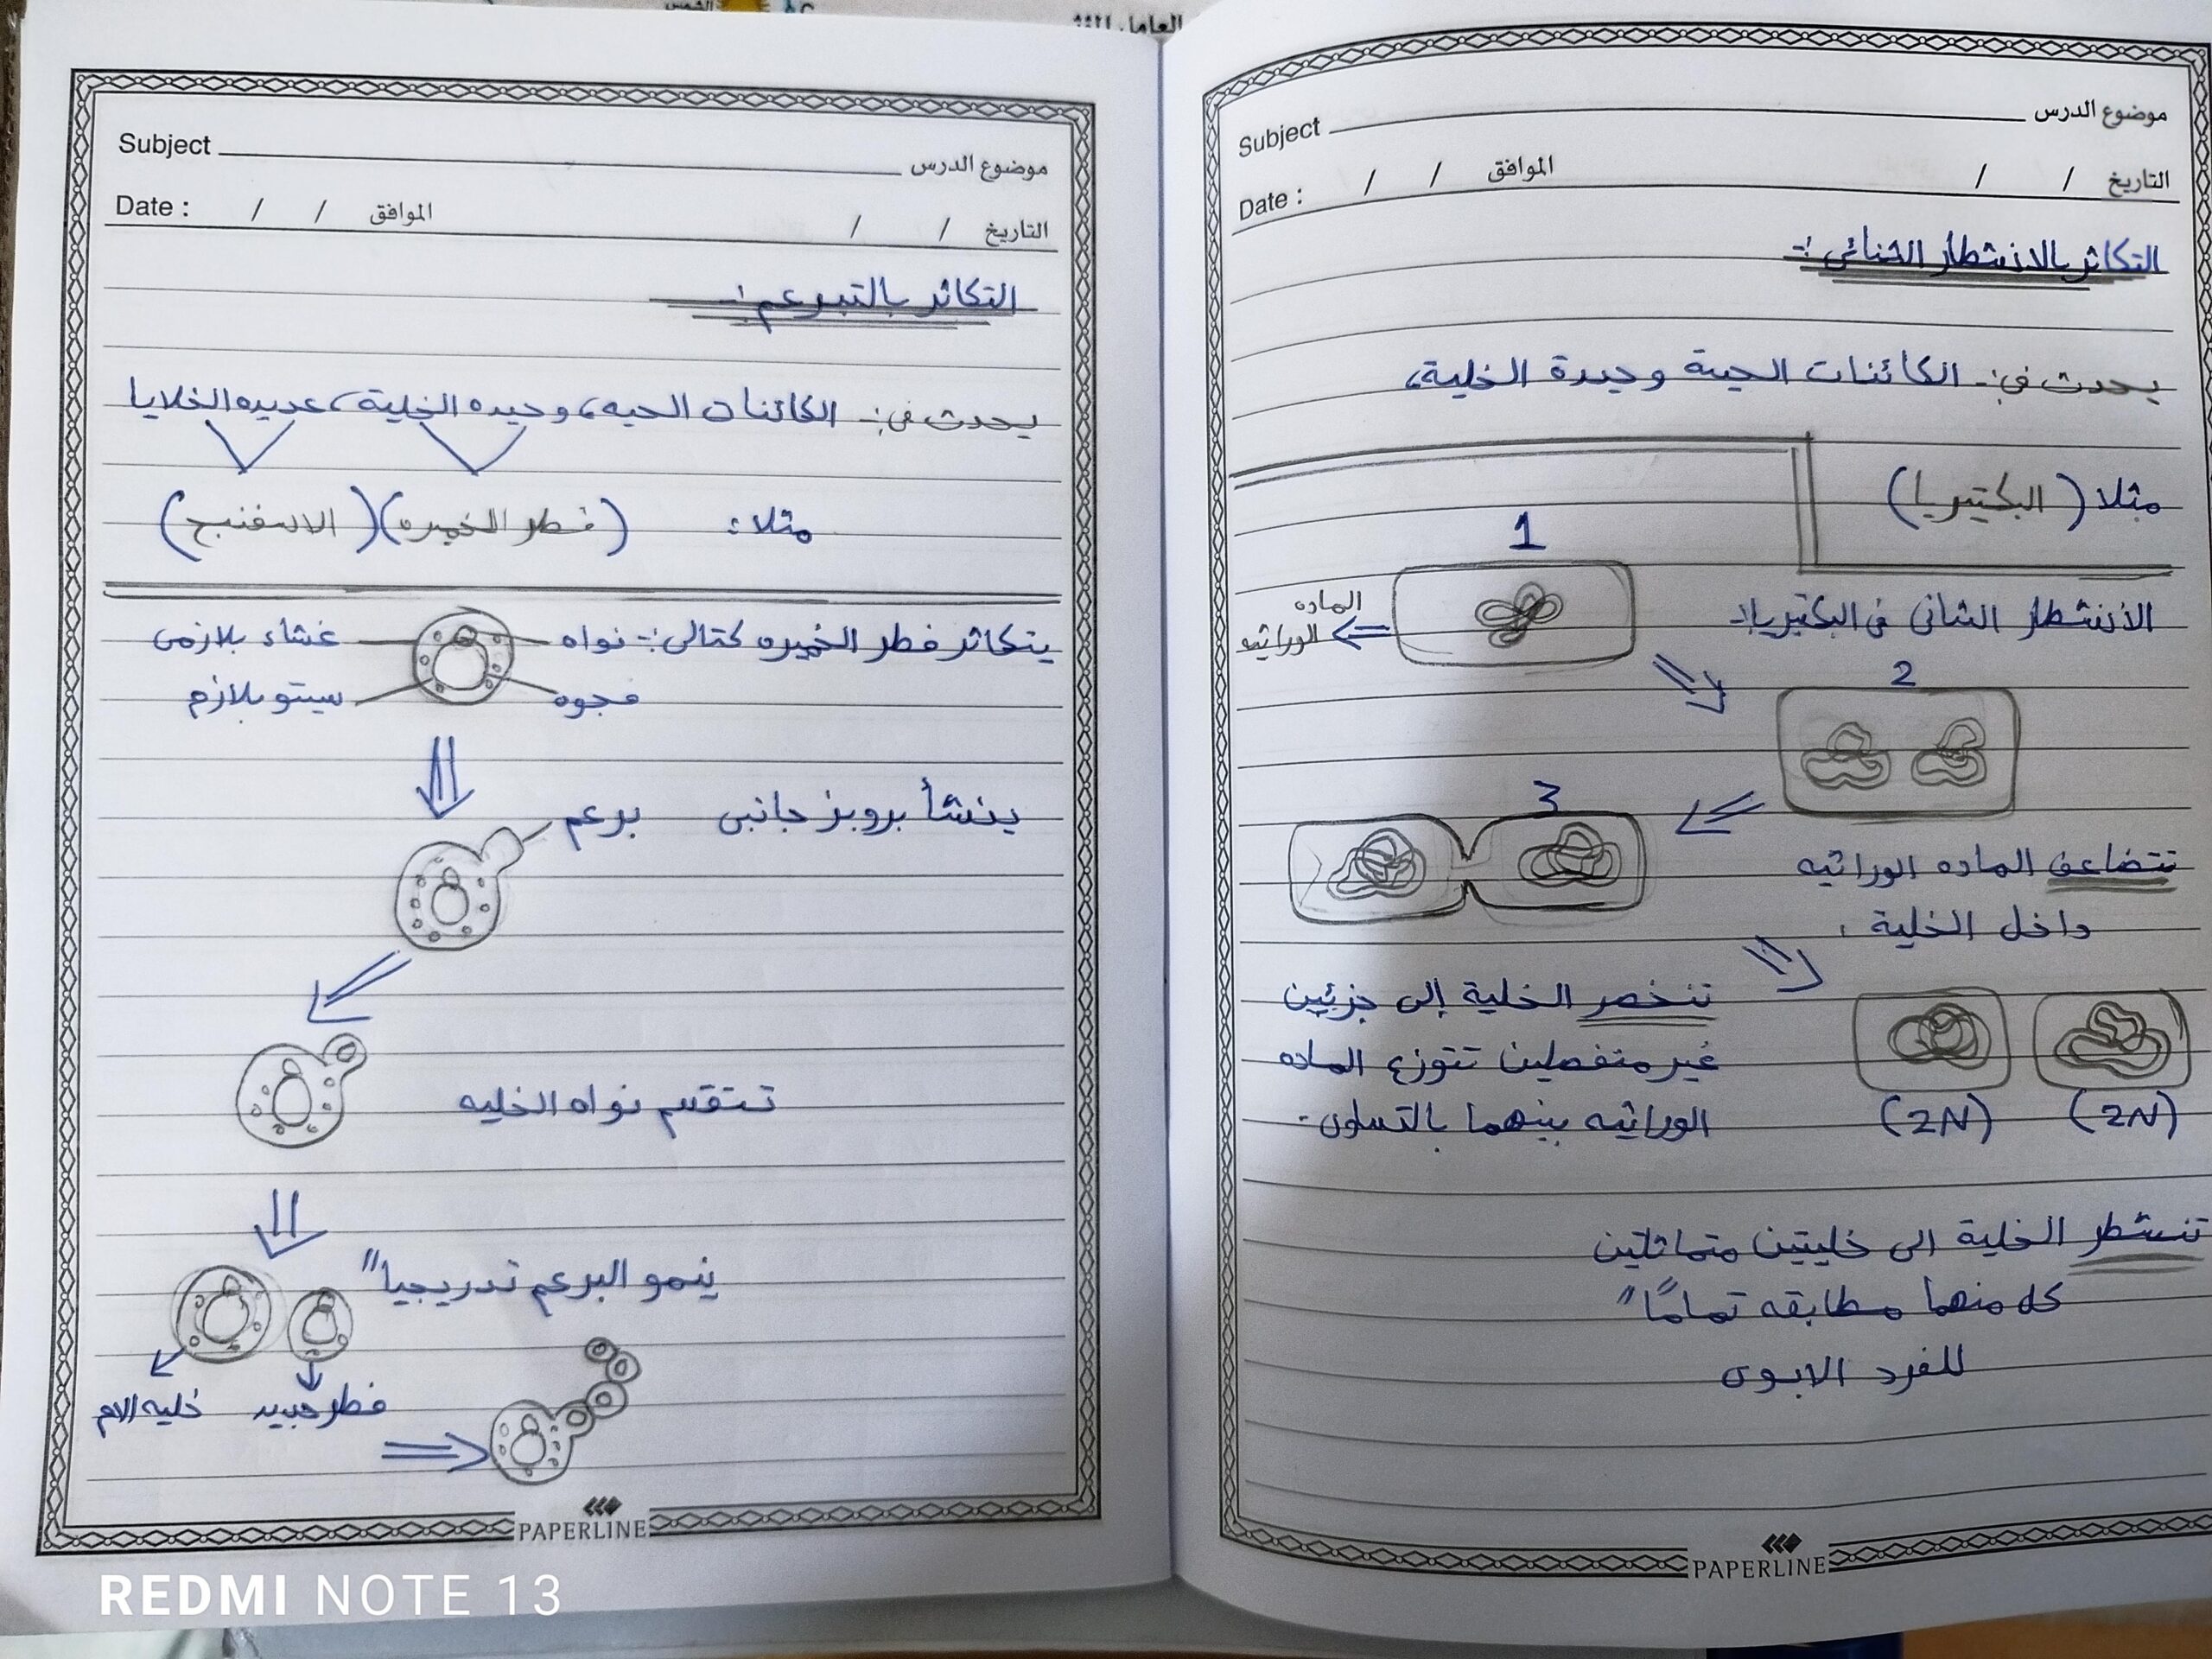 Subject موضوع الدرس
Date : / / الموافق / / التاريخ
التكاثر بالانشطار الثنائي :-
يحدث في :- الكائنات الحية وحيدة الخلية،
مثلا (البكتيريا)
1
الماده
الوراثيه
الأنشطار الثاني في البكتيريا :-
2
3
تتضاعف الماده الوراثيه
داخل الخلية
تنخصر الخلية إلى جزئين
غير منفصلين تتوزع الماده
الوراثيه بينهما بالتساوى .
(2N) (2N)
تنشطر الخلية الى خليتين متماثلتين
كل منهما مطابقه تمامًا"
للفرد الابوى
PAPERLINE
Subject موضوع الدرس
Date : / / الموافق / / التاريخ
التكاثر بالتبرعم :-
يحدث في :- الكائنات الحيه، وحيده الخلية، عديده الخلايا
مثلا : (فطر الخميره) (الاسفنج)
يتكاثر فطر الخميره كتالى :- نواه غشاء بلازمى
فجوه سيتوبلازم
ينشأ بروز جانبى برعم
تنقسم نواه الخليه
ينمو البرعم تدريجيا"
فطر جديد خليه الام
PAPERLINE
REDMI NOTE 13